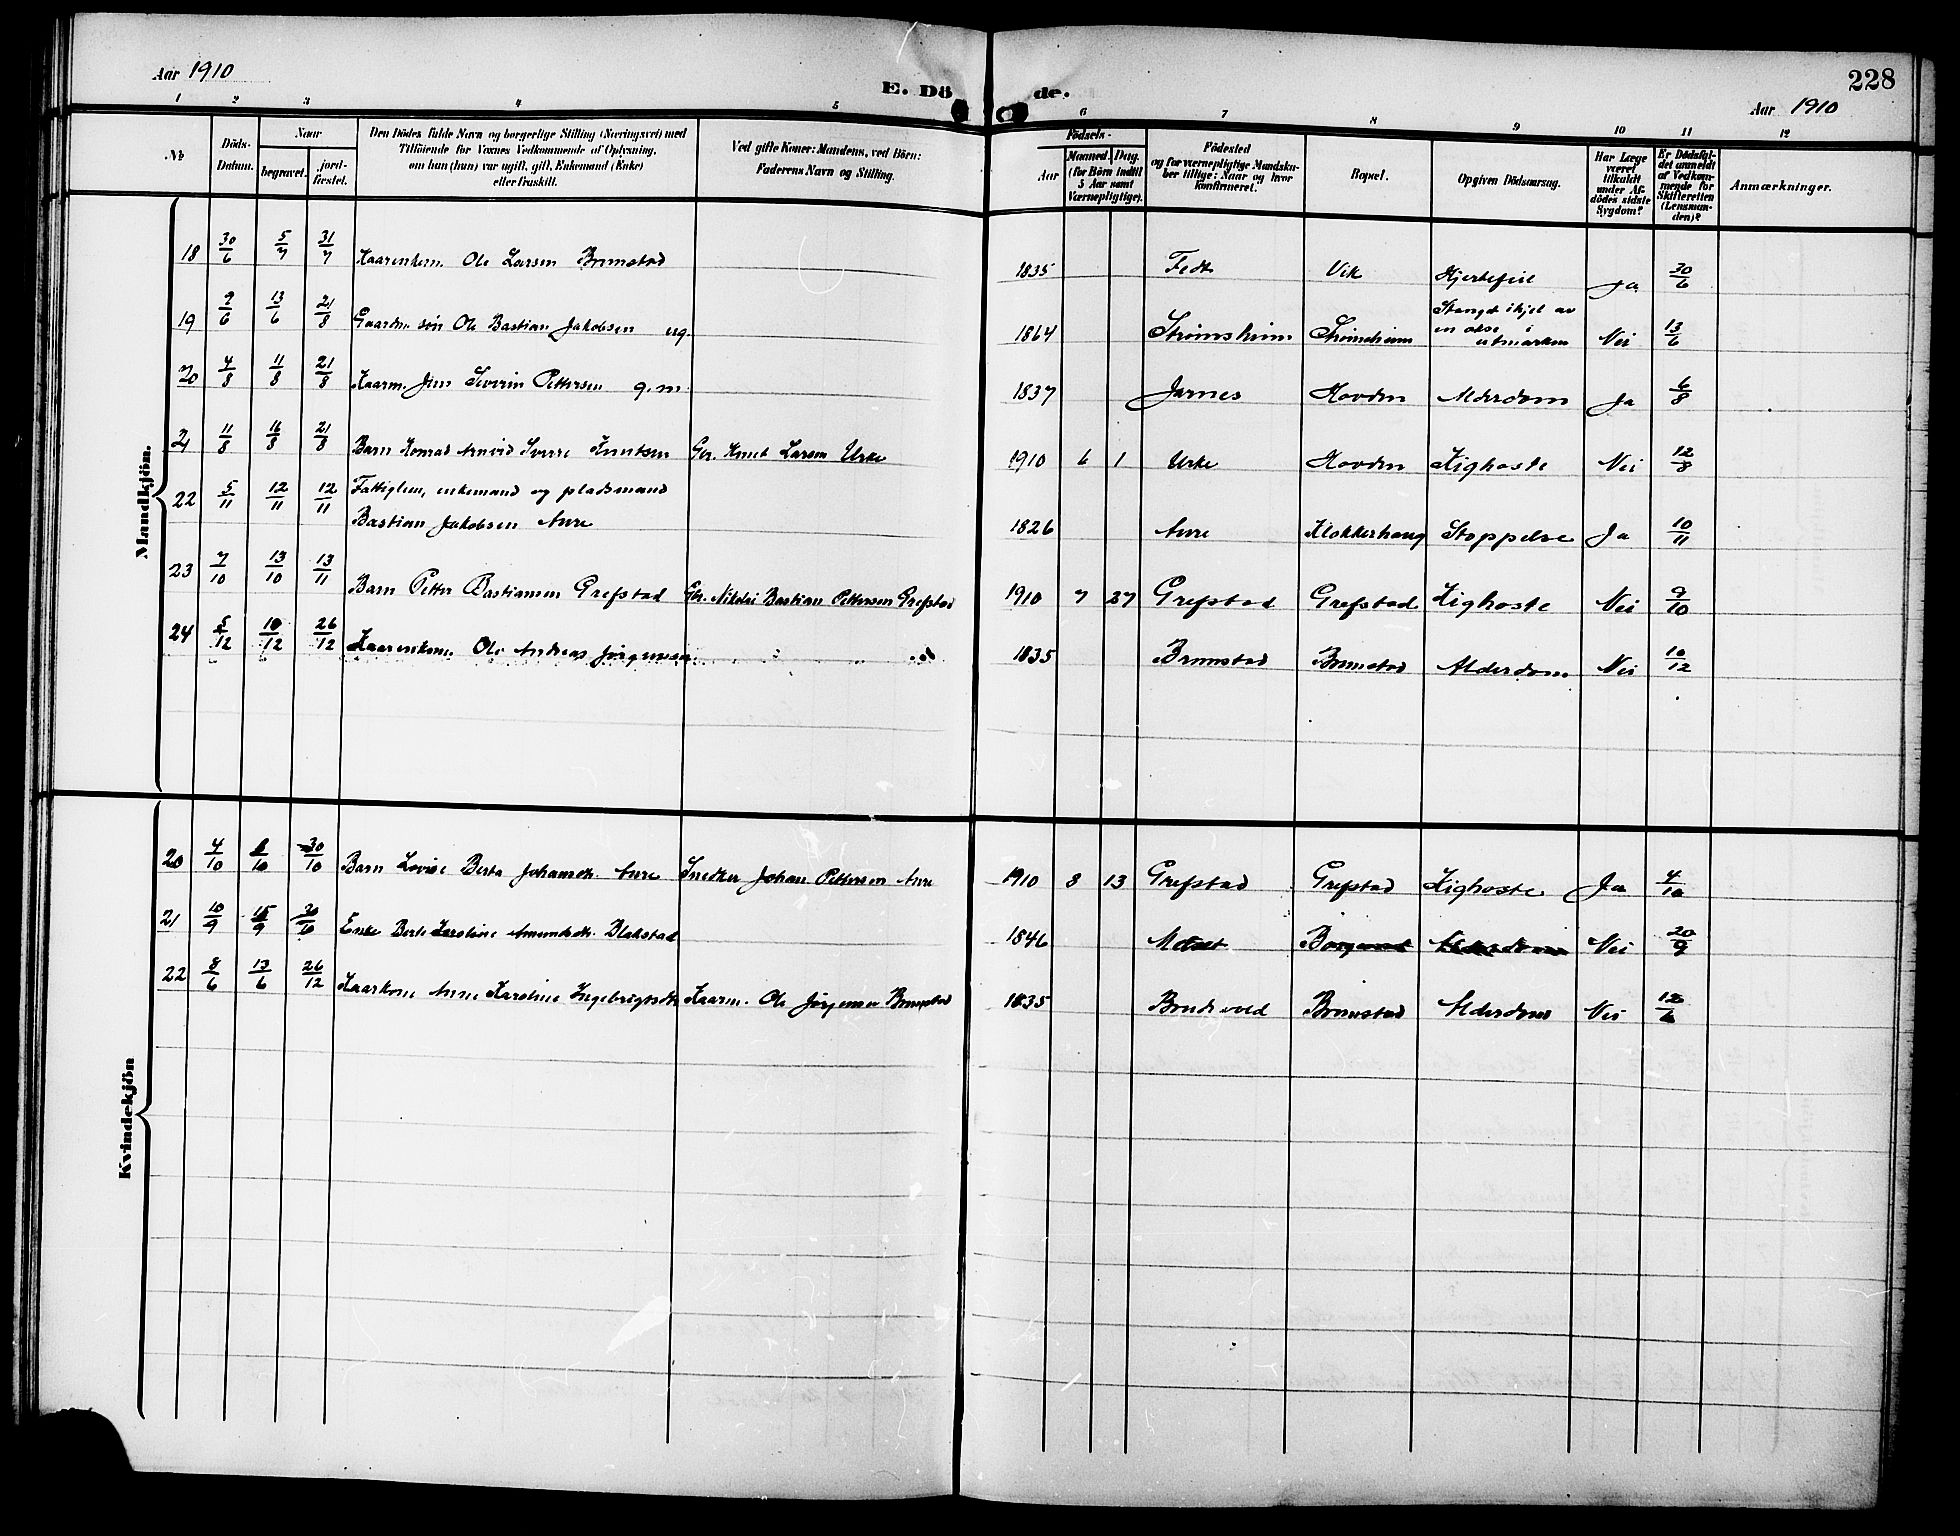 Aar 1910
E. Dö de.
228
Aar 1910
1 2 3 4 5 6 7 8 9 10 11 12
No
Döds-Datum.
Naar
begravet.
jord-fæstet.
Den Dödes fulde Navn og borgerlige Stilling (Næringsvei) med
Tilföiende for Voxnes Vedkommende af Oplysning,
om han (hun) var ugift, gift, Enkemand (Enke)
eller fraskilt.
Ved gifte Koner: Mandens, ved Börn:
Faderens Navn og Stilling.
Födsels-
Aar
Maaned. Dag.
(for Börn indtil
5 Aar samt
Værnepligtige).
Födested
og for værnepligtige Mandsku-
ber tillige: Naar og hvor
konfirmeret.
Bopæl.
Opgiven Dödsaarsag.
Har Læge
været
tilkaldt
under Af-
dödes sidste
Sygdom?
Er Dödsfal-
det anmeldt
af Vedkom-
mende for
Skifteretten
(Lensman-
den)?
Anmærkninger.
Mandkjön.
18 30/6 5/7 31/7 Ole Larsen Brunstad 1835 Vik Hjertefeil Ja 30/6
19 9/6 13/6 21/8 Gaardm. søn Ole Bastian Jakobsen ug. 1864 Strømsheim Strømsheim Stanget ihjel av
en okse i
utmarken Nei 13/6
20 4/8 11/8 21/8 Kaarm. Severin Pettersen g.m. 1837 Jarnes Hovden Alderdom Ja 6/8
21 11/8 16/8 21/8 Barn Konrad Arnvid Sverre Knutsen Gbr. Knut Larsen Urke 1910 6 1 Urke Hovden Kighoste Nei 12/8
22 5/11 12/11 12/11 Fattiglem, enkemand og pladsmand
Bastian Jakobsen Aure 1826 Aure Klokkerhaug Ja 10/11
23 7/10 13/10 13/11 Barn Petter Bastiansen Grefstad Gbr. Nikolai Bastian Pettersen Grefstad 1910 7 27 Grefstad Grefstad Kighoste Nei 9/10
24 5/12 10/12 26/12 Ole Andreas Jørgensen 1835 Brunstad Brunstad Alderdom Nei 10/12
Kvindekjön
20 4/10 30/10 Barn Lovise Berta Johansdt. Aure Snedker Johan Pettersen Aure 1910 8 13 Grefstad Grefstad Kighoste Ja 4/10
21 10/9 15/9 Enke Karoline Amundsdt. Blakstad 1846 Nei 20/9
22 8/6 13/6 26/12 Kaarkone Anne Karoline Ingebrigtsdt. Kaarm. Ole Jørgensen Brunstad 1835 Brudevold Brunstad Alderdom Nei 12/6